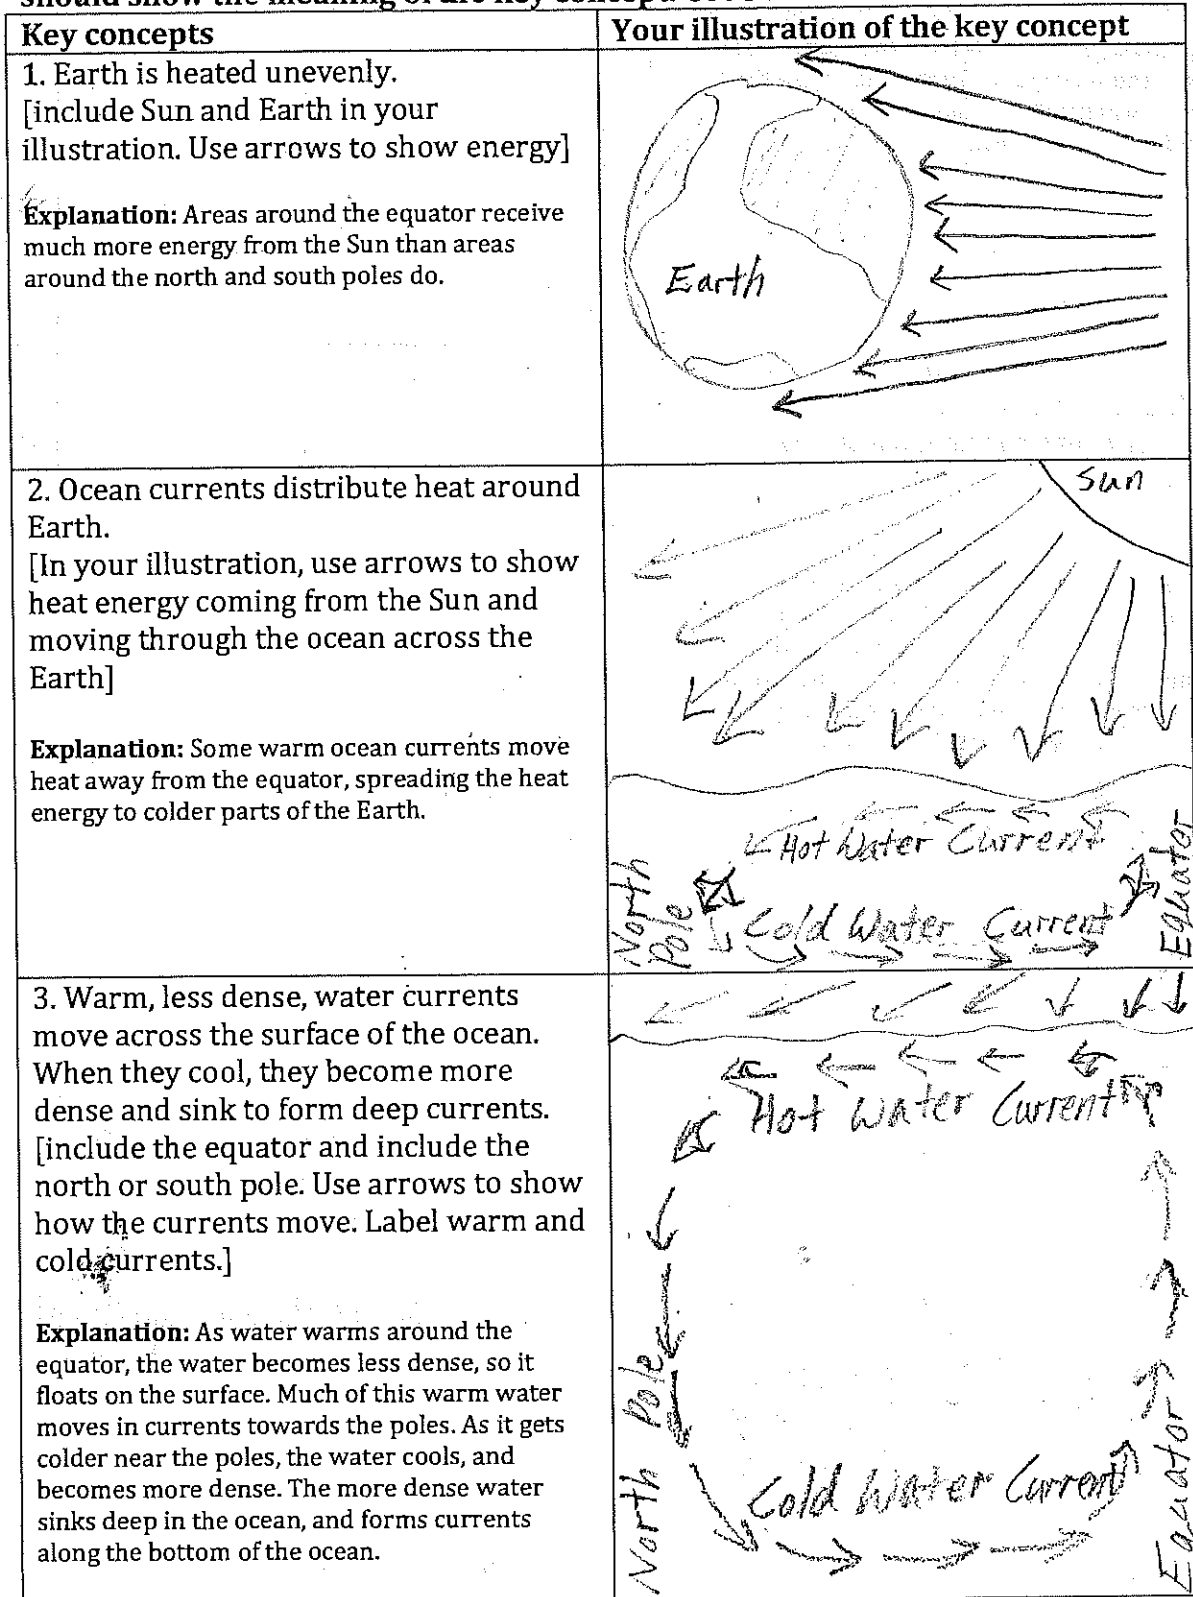 Key concepts
Your illustration of the key concept
1. Earth is heated unevenly.
[include Sun and Earth in your
illustration. Use arrows to show energy]
Explanation: Areas around the equator receive
much more energy from the Sun than areas
around the north and south poles do.
Earth
2. Ocean currents distribute heat around
Earth.
[In your illustration, use arrows to show
heat energy coming from the Sun and
moving through the ocean across the
Earth]
Explanation: Some warm ocean currents move
heat away from the equator, spreading the heat
energy to colder parts of the Earth.
Sun
Hot Water Current
Cold Water Current
North
Pole
Equator
3. Warm, less dense, water currents
move across the surface of the ocean.
When they cool, they become more
dense and sink to form deep currents.
[include the equator and include the
north or south pole. Use arrows to show
how the currents move. Label warm and
cold currents.]
Explanation: As water warms around the
equator, the water becomes less dense, so it
floats on the surface. Much of this warm water
moves in currents towards the poles. As it gets
colder near the poles, the water cools, and
becomes more dense. The more dense water
sinks deep in the ocean, and forms currents
along the bottom of the ocean.
Hot Water Current
Cold Water Current
North Pole
Equator